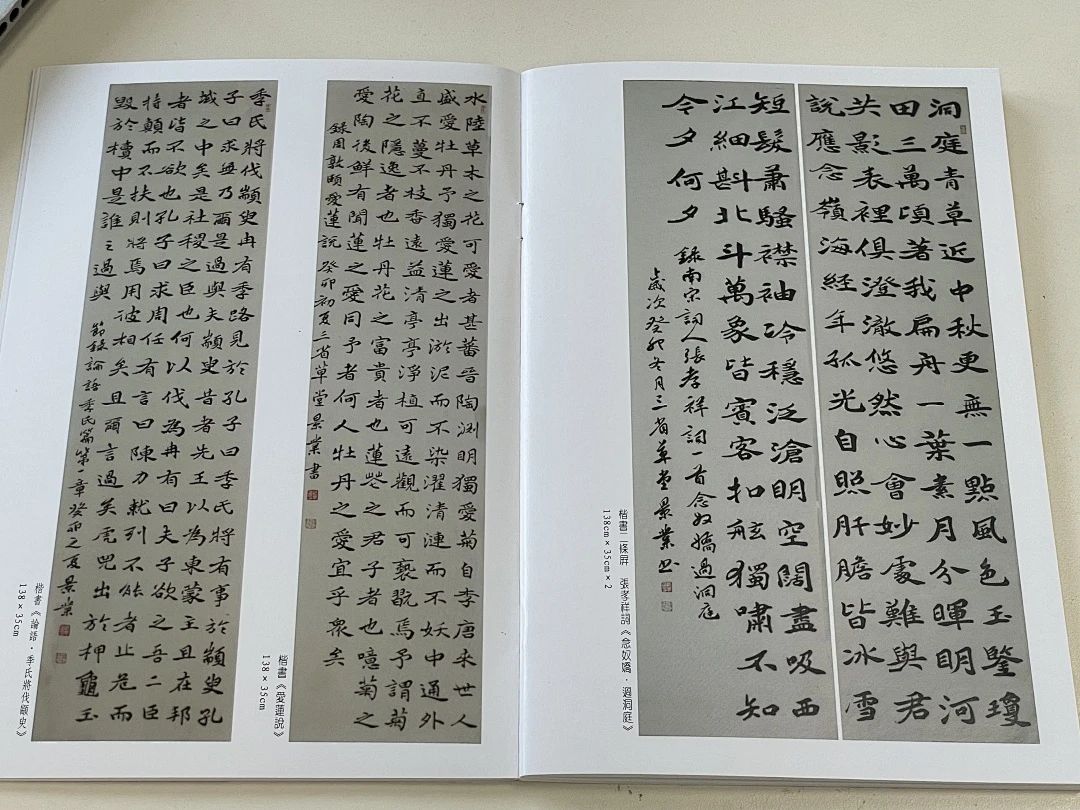 洞庭青草近中秋更無一點風色玉鑒瓊
田三萬頃著我扁舟一葉素月分暉明河
共影表裡俱澄澈悠然心會妙處難與君
說應念嶺海經年孤光自照肝膽皆冰雪
短髮蕭騷襟袖冷穩泛滄明空闊盡吸西
江細斟北斗萬象皆賓客扣舷獨嘯不知
今夕何夕
錄南宋詞人張孝祥詞一首念奴嬌過洞庭
歲次癸卯冬月三省草堂景業書
楷書二條屏 張孝祥詞《念奴嬌·過洞庭》
138cm×35cm×2
水陸草木之花可愛者甚蕃晉陶渊明獨愛菊自李唐来世人
盛愛牡丹予獨愛蓮之出淤泥而不染濯清漣而不妖中通外
直不蔓不枝香遠益清亭亭淨植可遠觀而可褻翫焉予謂菊
花之隱逸者也牡丹花之富貴者也蓮花之君子者也噫菊之
愛陶後鮮有聞蓮之愛同予者何人牡丹之愛宜乎眾矣
錄周敦頤愛蓮說癸卯初夏三省草堂景業書
楷書《愛蓮說》
138×35cm
季氏將伐顓臾冉有季路見於孔子曰季氏將有事於顓臾孔
子曰求無乃爾是過與夫顓臾昔者先王以為東蒙主且在邦
域之中矣是社稷之臣也何以伐為冉有曰夫子欲之吾二臣
者皆不欲也孔子曰求周任有言曰陳力就列不能者止危而
持顛而不扶則將焉用彼相矣且爾言過矣虎兕出於柙龜玉
毀於櫝中是誰之過與
節錄論語季氏篇第一章癸卯之夏景業
楷書《論語·季氏將伐顓臾》
138×35cm